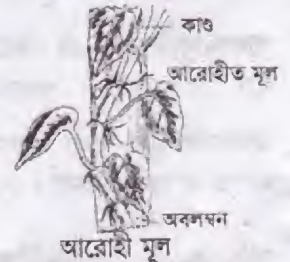 কাণ্ড
আরোহীত মূল
অবলম্বন
আরোহী মূল